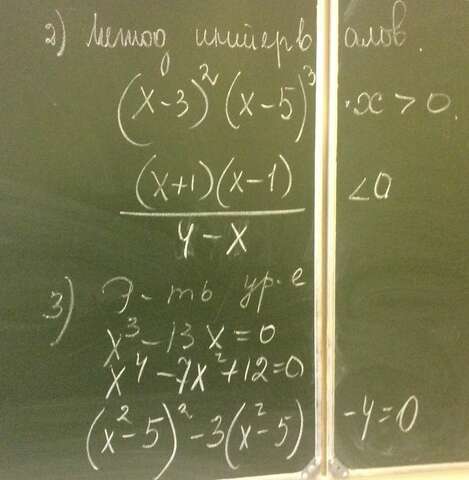 2) Метод интервалов.
(x-3)²(x-5)³·x>0.
(x+1)(x-1)
/ 4-x <0
3) Э-ть ур-е
x³-13x=0
x⁴-7x²+12=0
(x²-5)²-3(x²-5)-4=0